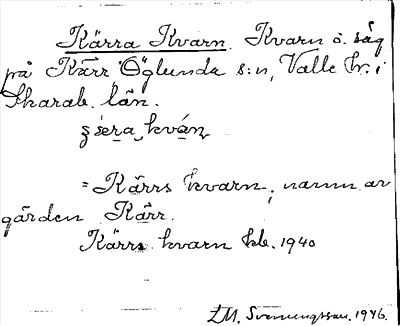 Kärra Kvarn. Kvarn o. såg
på Kärr Öglunda s:n, Valle hr. i
Skarab. län.
kván
= Kärrs kvarn, namn av
gården Kärr.
Kärrs kvarn kb. 1940
Svenungsson. 1946.